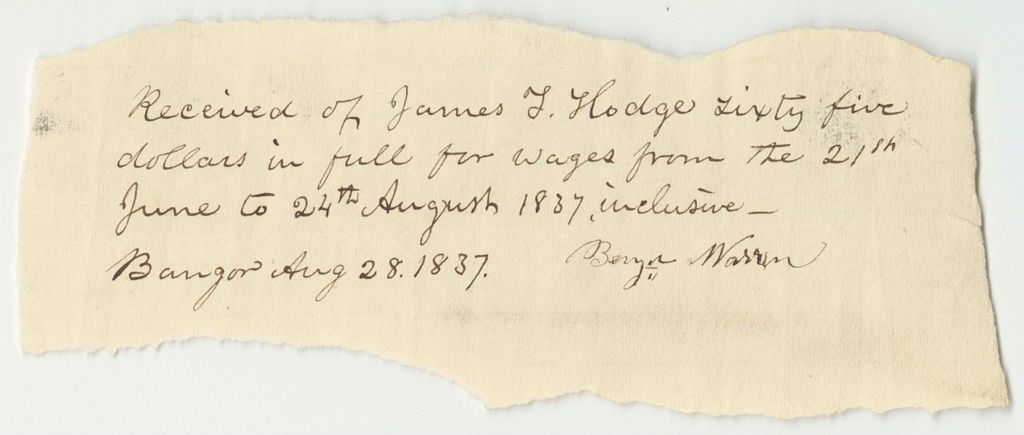 Received of James T. Hodge sixty five
dollars in full for wages from the 21st
June to 24th August 1837, inclusive_
Bangor Aug 28. 1837. Benjn Warren